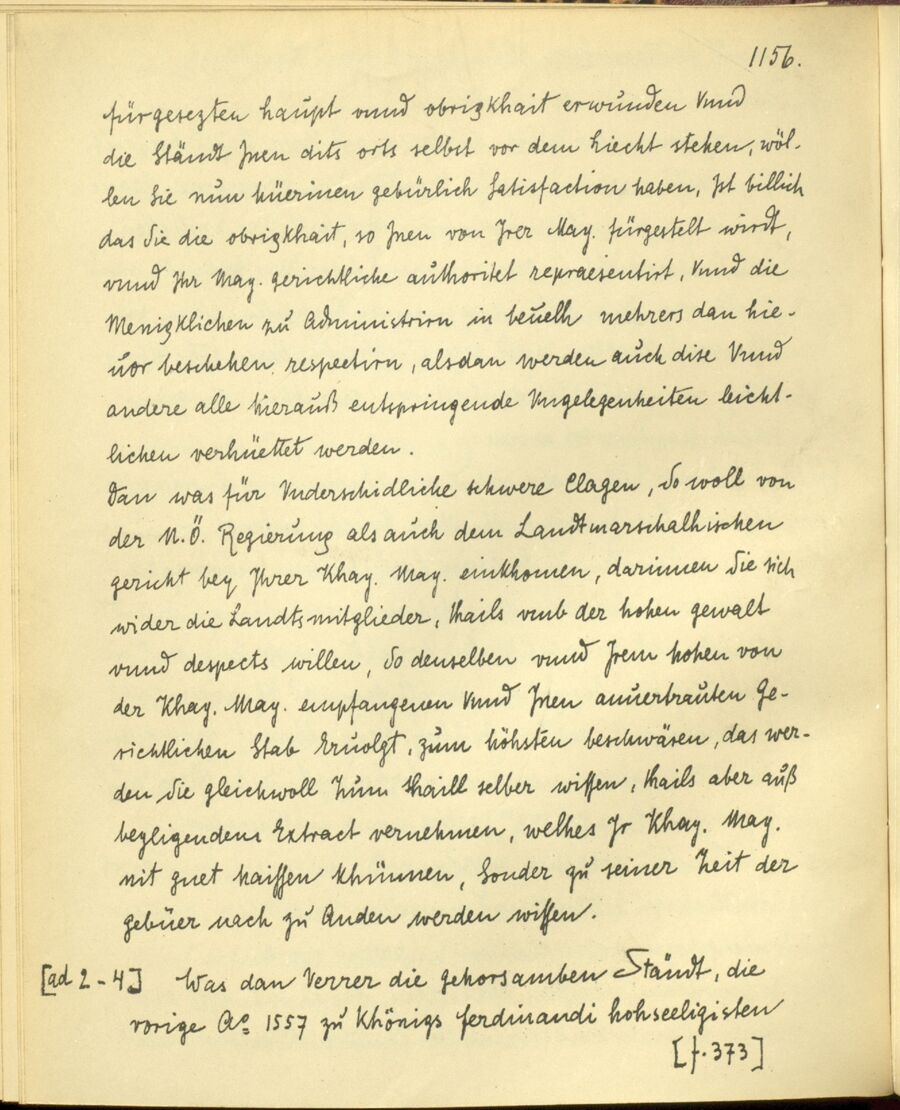 1156.
fürgesezten haupt vnnd obrigkhait erwunden Vnnd
die Ständt Jnen dits orts selbst vor dem Liecht stehen, wöl-
len Sie nun hüerinen gebürlich Satisfaction haben, Jst billich
das Sie die obrigkhait, so Jnen von Jrer May. fürgestelt wirdt,
vnnd Jhr May. gerichtliche authoritet repraesentirt, Vnnd die
Menigklichen zu Administrirn in beuelh mehrers dan hie-
uor beschehen respectirn, alsdan werden auch dise Vnnd
andere alle hierauß entspringende Vngelegenheiten leicht-
lichen verhüettet werden.
Dan was für Vnderschidliche schwere Clagen, So woll von
der N.Ö. Regierung als auch dem Landtmarschalhischen
gericht bey Jhrer Khay. May. einkhomen, darinnen Sie sich
wider die Landtsmitglieder, thails vmb der hohen gewalt
vnnd despects willen, So denselben vnnd Jrem hohen von
der Khay. May. empfangenen Vnnd Jnen anuertrauten Ge-
richtlichen Stab Eruolgt, zum höhsten beschwären, das wer-
den Sie gleichwoll Zum thaill selber wissen, thails aber auß
beyligendem Extract vernehmen, welhes Jr Khay. May.
nit guet haissen khünnen, Sonder zu seiner Zeit der
gebüer nach zu Anden werden wissen.
[ad 2-4] Was dan Verrer die gehorsamben Ständt, die
vorige Ao. 1557 zu Khönigs ferdinandi hohseeligisten
[f. 373]